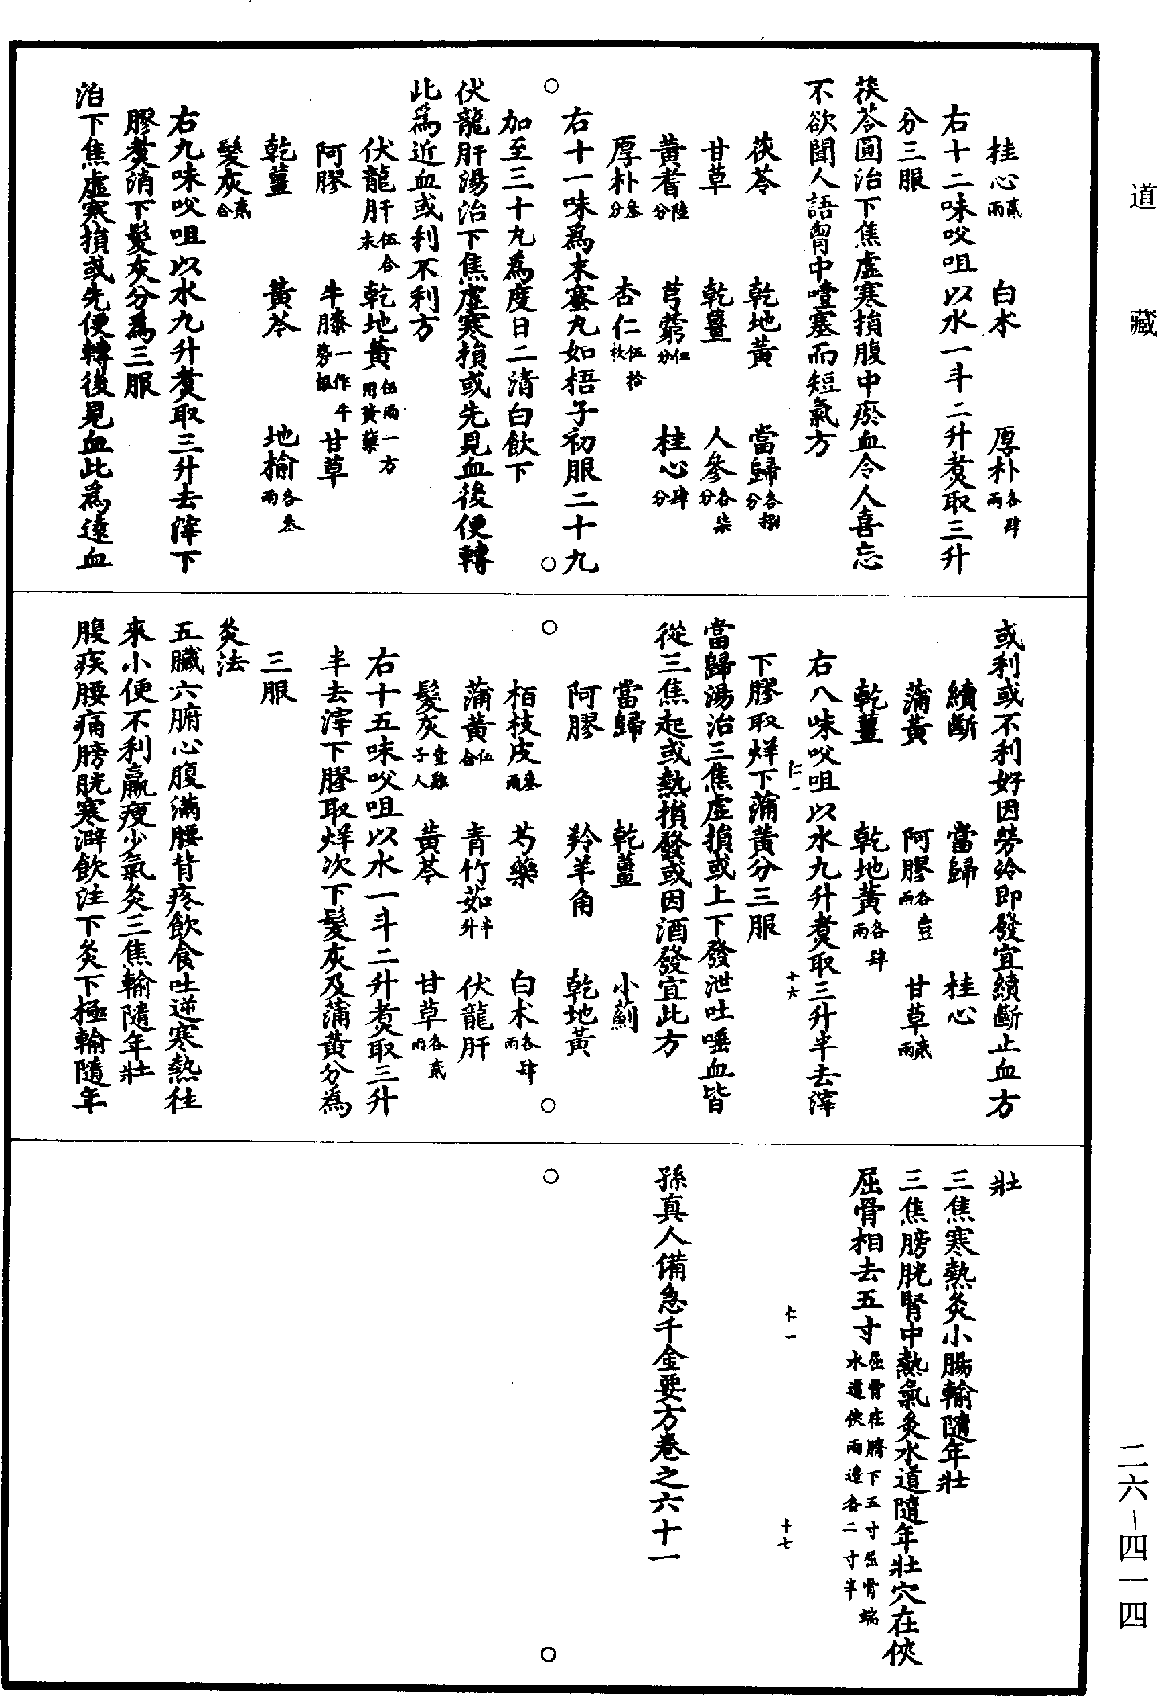 道藏
桂心貳兩 白术 厚朴各肆兩
右十二味㕮咀以水一斗二升煑取三升
分三服
茯苓圓治下焦虛寒損腹中瘀血令人喜忘
不欲聞人語胷中噎塞而短氣方
茯苓 乾地黃 當歸各捌分
甘草 乾薑 人參各柒分
黃耆陸分 芎藭伍分 桂心肆分
厚朴叁分 杏仁伍拾枚
右十一味為末蜜丸如梧子初服二十丸
加至三十丸為度日二清白飲下
伏龍肝湯治下焦虛寒損或先見血後便轉
此為近血或利不利方
伏龍肝伍合末 乾地黃伍兩一方用黃蘗
阿膠 牛膝一作牛蒡根 甘草
乾薑 黃芩 地榆各叁兩
髮灰貳合
右九味㕮咀以水九升煑取三升去滓下
膠煑消下髮灰分為三服
治下焦虛寒損或先便轉後見血此為遠血
或利或不利好因勞冷即發宜續斷止血方
續斷 當歸 桂心
蒲黃 阿膠各壹兩 甘草貳兩
乾薑 乾地黃各肆兩
右八味㕮咀以水九升煑取三升半去滓
下膠取烊下蒲黃分三服
仁一 十六
當歸湯治三焦虛損或上下發泄吐唾血皆
從三焦起或熱損發或因酒發宜此方
當歸 乾薑 小薊
阿膠 羚羊角 乾地黃
栢枝皮叁兩 芍藥 白术各肆兩
蒲黃伍合 青竹茹半升 伏龍肝
髮灰壹雞子大 黃芩 甘草各貳兩
右十五味㕮咀以水一斗二升煑取三升
半去滓下膠取烊次下髮灰及蒲黃分為
三服
灸法
五臟六腑心腹滿腰背疼飲食吐逆寒熱往
來小便不利羸瘦少氣灸三焦輸隨年壯
腹疾腰痛膀胱寒澼飲注下灸下極輸隨年
壯
三焦寒熱灸小腸輸隨年壯
三焦膀胱腎中熱氣灸水道隨年壯穴在俠
屈骨相去五寸屈骨在臍下五寸屈骨端水道俠兩邊各二寸半
仁一 十七
孫真人備急千金要方卷之六十一
二六-四一四